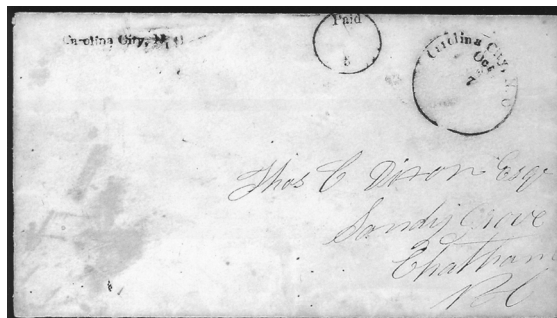 Carolina City, N. C.
Paid
5
Carolina City, N. C.
Oct
7
Thos C Dixon Esqr
Sandy Grove
Chatham
N C